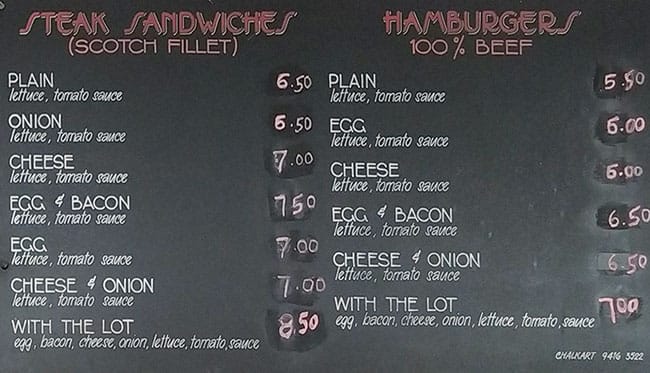 STEAK SANDWICHES
(SCOTCH FILLET)
PLAIN 6.50
lettuce, tomato sauce
ONION 6.50
lettuce, tomato sauce
CHEESE 7.00
lettuce, tomato sauce
EGG & BACON 7.50
lettuce, tomato sauce
EGG 7.00
lettuce, tomato sauce
CHEESE & ONION 7.00
lettuce, tomato sauce
WITH THE LOT 8.50
egg, bacon, cheese, onion, lettuce, tomato, sauce
HAMBURGERS
100% BEEF
PLAIN 5.50
lettuce, tomato sauce
EGG 6.00
lettuce, tomato sauce
CHEESE 6.00
lettuce, tomato sauce
EGG & BACON 6.50
lettuce, tomato sauce
CHEESE & ONION 6.50
lettuce, tomato sauce
WITH THE LOT 7.00
egg, bacon, cheese, onion, lettuce, tomato, sauce
CHALKART 9416 3522